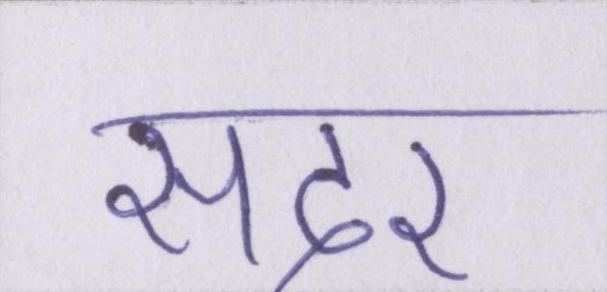 सदर